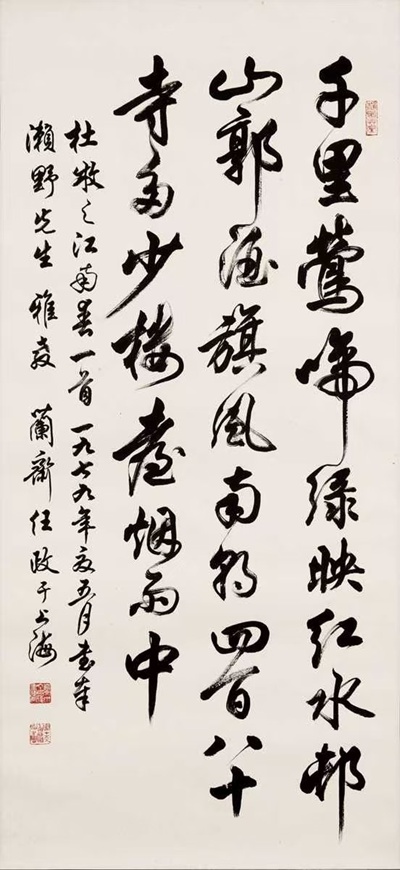 千里鶯啼綠映紅水邨
山郭酒旗風南朝四百八十
寺多少樓臺烟雨中
杜牧之江南春一首 一九七九年夏五月書奉
瀨野先生雅教 蘭齋任政于上海